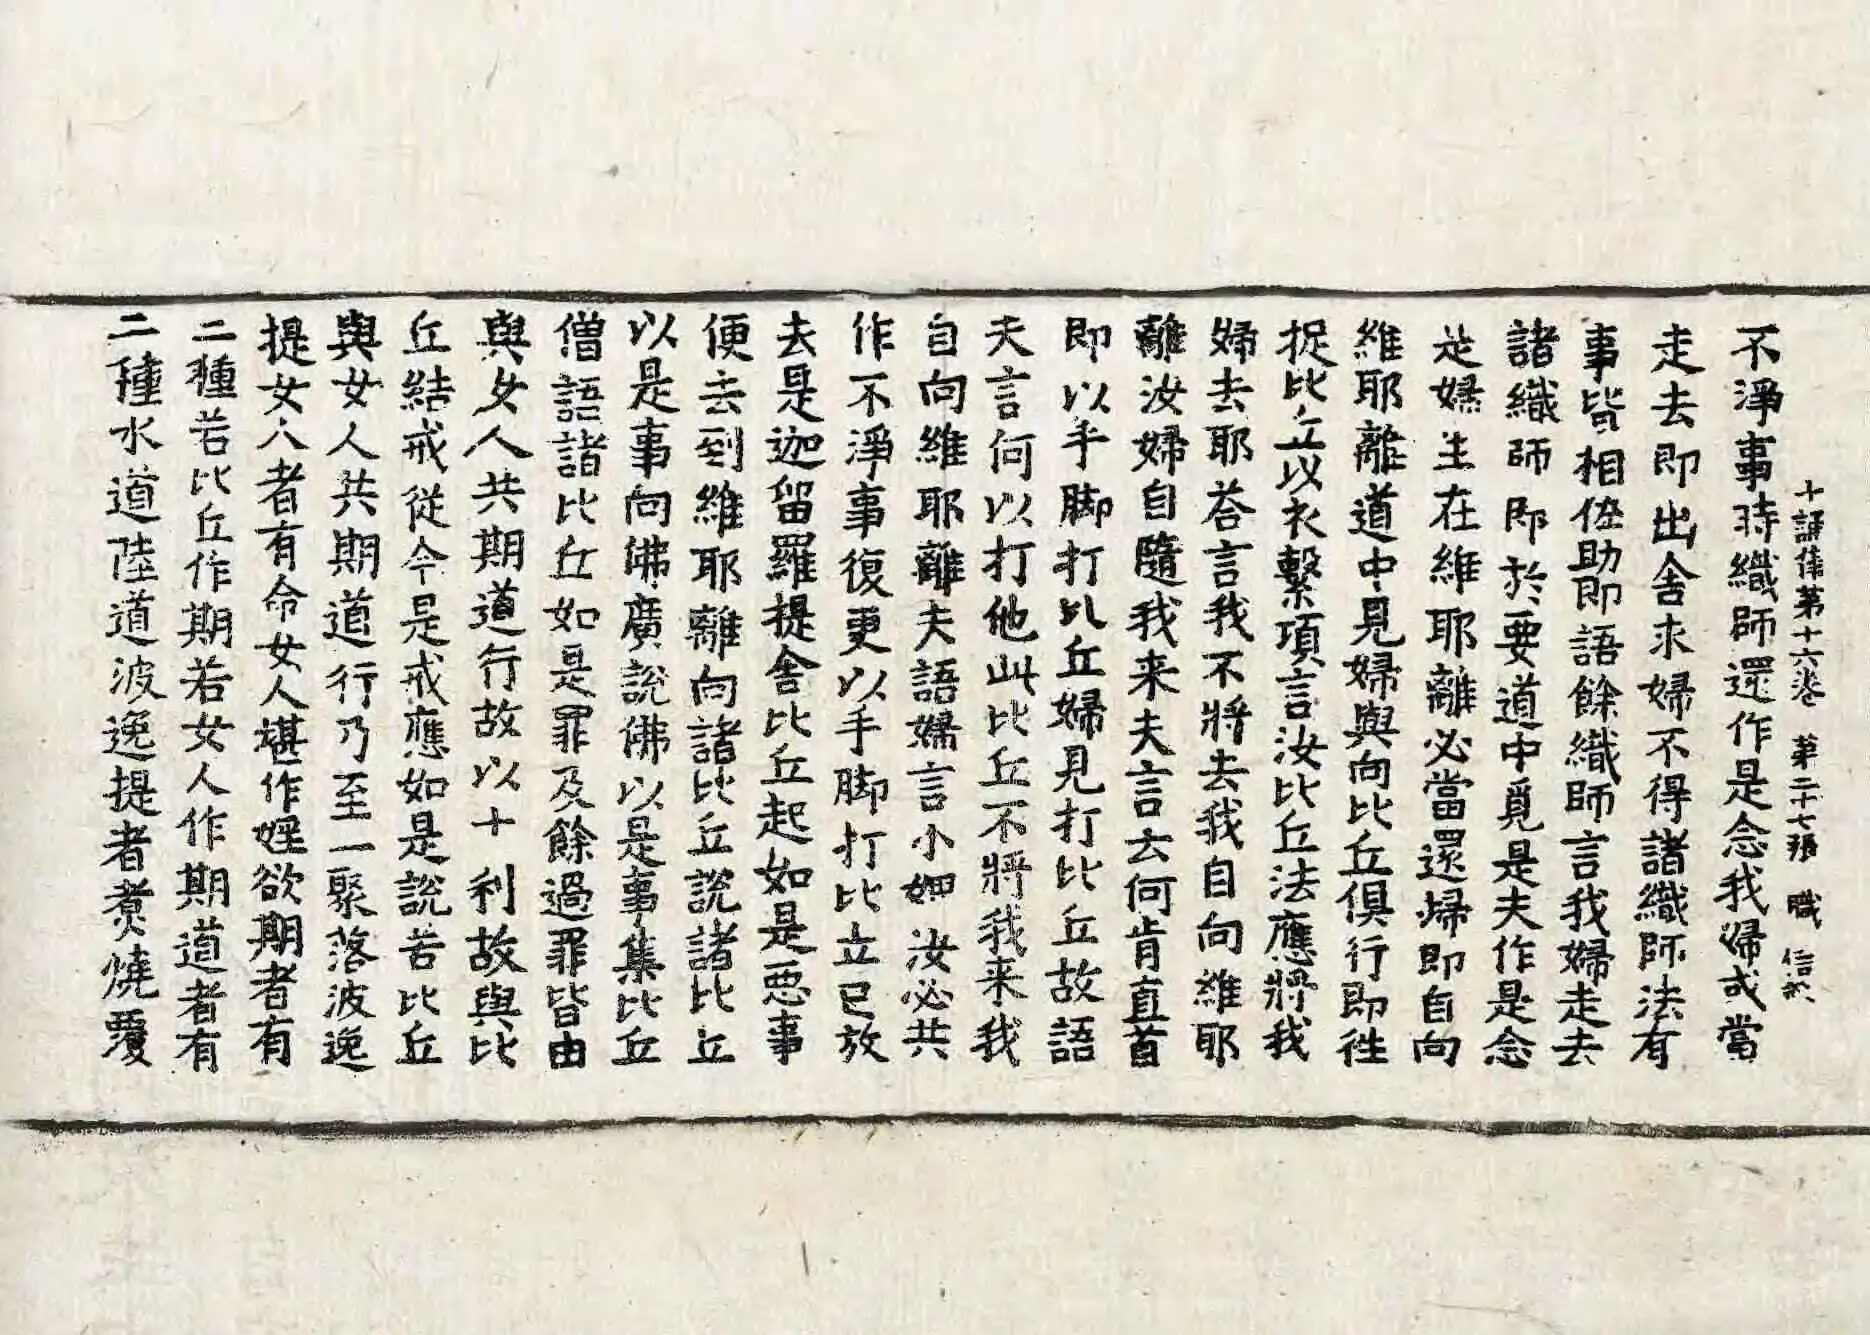 十誦律第十六卷 第二十七張 職
不淨事時織師還作是念我婦或當
走去即出舍求婦不得諸織師法有
事皆相佐助即語餘織師言我婦走去
諸織師即於要道中覓是夫作是念
是婦生在維耶離必當還歸即自向
維耶離道中見婦與向比丘俱行即往
捉比丘以衣繫項言汝比丘法應將我
婦去耶荅言我不將去我自向維耶
離汝婦自隨我来夫言云何肯直首
即以手脚打比丘婦見打比丘故語
夫言何以打他此比丘不將我来我
自向維耶離夫語婦言小婢汝必共
作不淨事復更以手脚打比丘已放
去是迦留羅提舍比丘起如是惡事
便去到維耶離向諸比丘說諸比丘
以是事向佛廣說佛以是事集比丘
僧語諸比丘如是罪及餘過罪皆由
與女人共期道行故以十利故與比
丘結戒從今是戒應如是說若比丘
與女人共期道行乃至一聚落波逸
提女人者有命女人堪作婬欲期者有
二種若比丘作期若女人作期道者有
二種水道陸道波逸提者煮燒覆